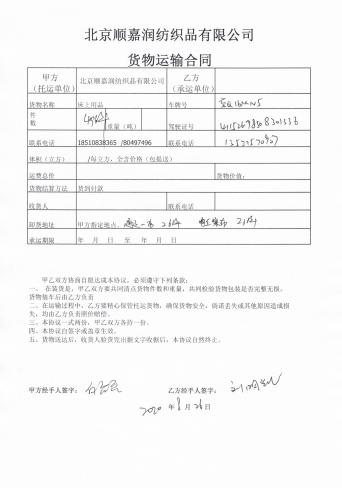 北京顺嘉润纺织品有限公司
货物运输合同
甲方（托运单位） 北京顺嘉润纺织品有限公司 乙方（承运单位）
货物名称 床上用品 车牌号
件数 重量（吨） 驾驶证号
联系电话 18510838365 /80497496 联系电话
体积（立方） /每立方，全含价格（包提送）
运费总价 货物价值：
货物结算方法 货到付款
收货人 联系电话
卸货地址 甲方指定地点，
承运期限 年 月 日 至 年 月 日
甲乙双方协商自愿达成本协议，必须遵守下列条款：
一、 在装货是，甲乙双方要共同清点货物件数和重量，共同检验货物包装是否完整无损。
货物装车后由乙方负责
二、在运输过程中，乙方要精心保管托运货物，确保货物安全，倘若丢失或其他原因造成损
失，均由乙方负责照价赔偿。
三、本协议一式两份，甲乙双方各持一份。
四、本协议自签字或盖章生效。
五、货物送达后，收货人验货完出据文字收据后，本协议自然终止。
甲方经手人签字： 乙方经手人签字：
2020 年 8 月 26 日